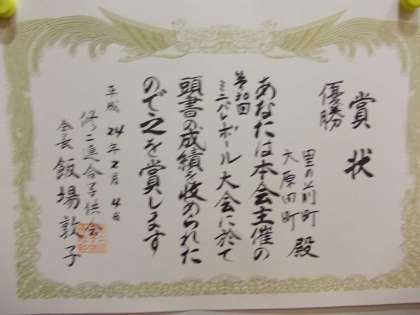 賞状
優勝
里の前町
大原田町 殿
あなたは本会主催の
第30回
ミニバレーボール大会に於て
頭書の成績を収められた
ので之を賞します
平成24年2月4日
修二連合子供会
会長 飯場敦子